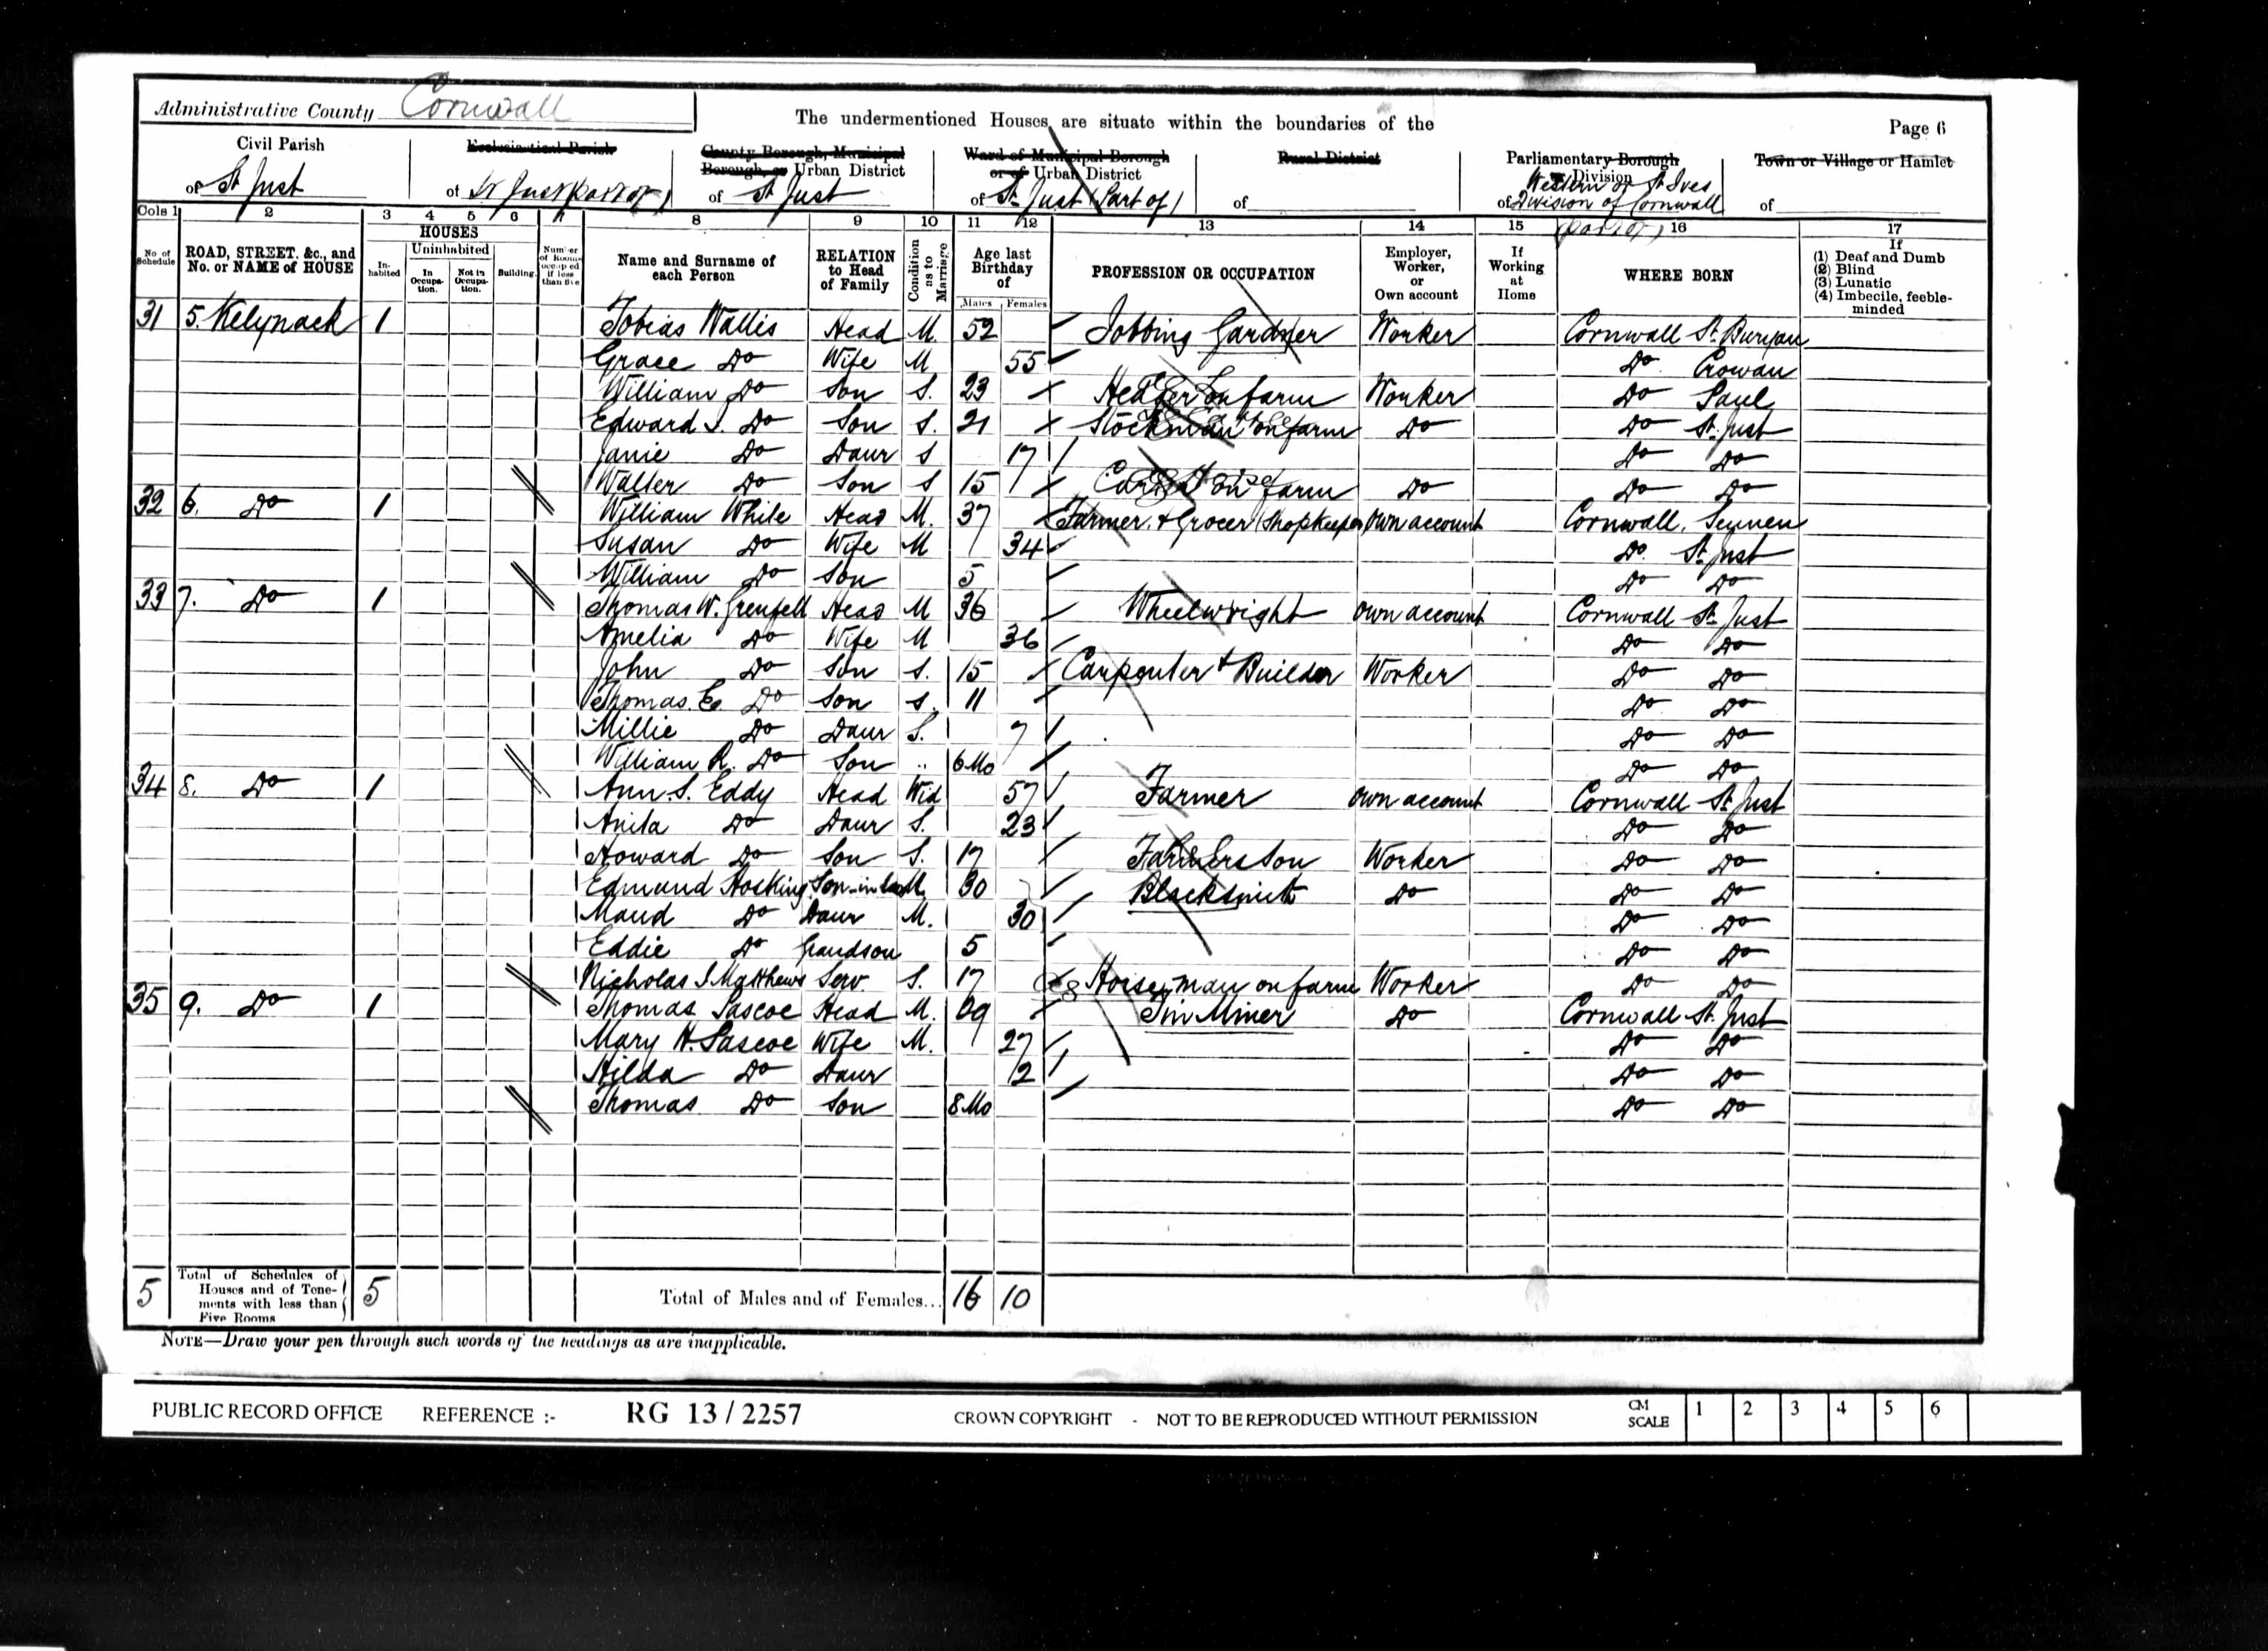 Administrative County Cornwall
The undermentioned Houses are situate within the boundaries of the
Page 6
Civil Parish
Ecclesiastical Parish
County Borough, Municipal Borough, or Urban District
Ward of Municipal Borough or of Urban District
Rural District
Parliamentary Borough or Division
Town or Village or Hamlet
of St Just
of St Just (part of)
of St Just
of St Just (Part of)
of
of Western or St Ives Division of Cornwall (part of)
of
Cols 1 2 3 4 5 6 7 8 9 10 11 12 13 14 15 16 17
No of Schedule
ROAD, STREET, &c., and No. or NAME of HOUSE
HOUSES
Inhabited
Uninhabited
In Occupation.
Not in Occupation.
Building.
Number of Rooms occupied if less than five
Name and Surname of each Person
RELATION to Head of Family
Condition as to Marriage
Age last Birthday of
Males Females
PROFESSION OR OCCUPATION
Employer, Worker, or Own account
If Working at Home
WHERE BORN
If (1) Deaf and Dumb (2) Blind (3) Lunatic (4) Imbecile, feeble-minded
31 5. Kelynack 1 Tobias Wallis Head M. 52 Jobbing Gardner Worker Cornwall St. Buryan
Grace Do Wife M 55 Do Crowan
William Do Son S. 23 on farm Worker Do Paul
Edward J. Do Son S. 21 Stockman on farm Do Do St. Just
Janie Do Daur S 17 Do Do
Walter Do Son S 15 on farm Do Do Do
32 6. Do 1 William White Head M. 37 Farmer & Grocer Shopkeeper Own account Cornwall, Sennen
Susan Do Wife M 34 Do St. Just
William Do Son 5 Do Do
33 7. Do 1 Thomas W. Grenfell Head M 36 Wheelwright Own account Cornwall St. Just
Amelia Do Wife M 36 Do Do
John Do Son S. 15 Carpenter & Builder Worker Do Do
Thomas. E. Do Son S. 11 Do Do
Millie Do Daur S. 7 Do Do
William R. Do Son .. 6 Mo Do Do
34 8. Do 1 Ann. S. Eddy Head Wid 57 Farmer Own account Cornwall St. Just
Anita Do Daur S. 23 Do Do
Howard Do Son S. 17 Farmers Son Worker Do Do
Edmund Hosking Son-in-law M. 30 Blacksmith Do Do Do
Maud Do Daur M. 30 Do Do
Eddie Do Grandson 5 Do Do
Nicholas J Matthews Serv S. 17 Horseman on farm Worker Do Do
35 9. Do 1 Thomas Pascoe Head M. 29 Tin Miner Do Cornwall St. Just
Mary H. Pascoe Wife M. 27 Do Do
Hilda Do Daur 2 Do Do
Thomas Do Son 8 Mo Do Do
5 Total of Schedules of Houses and of Tenements with less than Five Rooms 5 Total of Males and of Females... 16 10
NOTE—Draw your pen through such words of the headings as are inapplicable.
PUBLIC RECORD OFFICE REFERENCE :- RG 13 / 2257 CROWN COPYRIGHT - NOT TO BE REPRODUCED WITHOUT PERMISSION CM SCALE 1 2 3 4 5 6